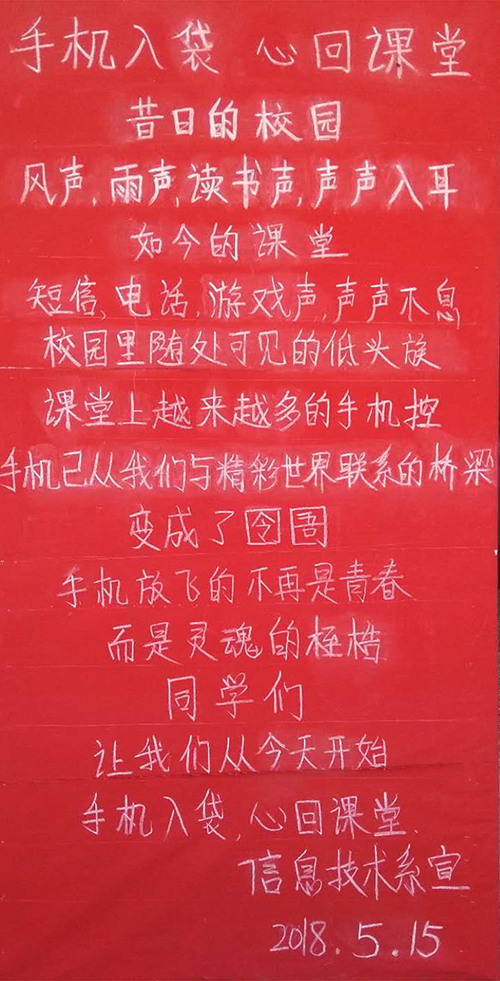 手机入袋 心回课堂
昔日的校园
风声,雨声,读书声,声声入耳
如今的课堂
短信,电话,游戏声,声声不息
校园里随处可见的低头族
课堂上越来越多的手机控
手机已从我们与精彩世界联系的桥梁
变成了囹圄
手机放飞的不再是青春
而是灵魂的桎梏
同学们
让我们从今天开始
手机入袋,心回课堂.
信息技术系宣
2018.5.15